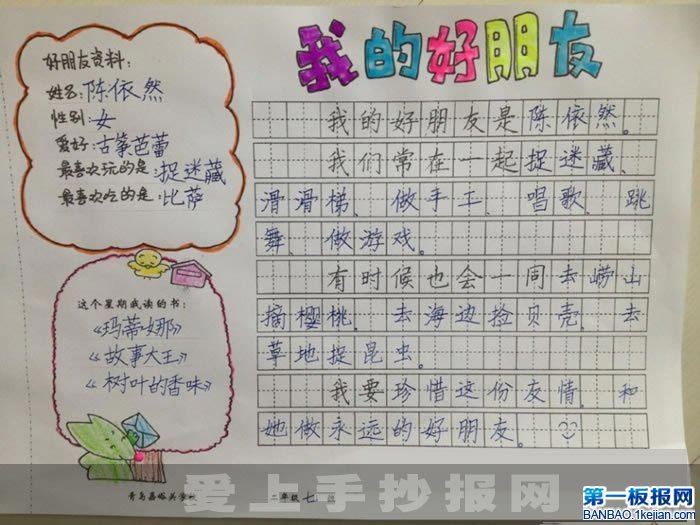 我的好朋友
好朋友资料：
姓名：陈依然
性别：女
爱好：古筝芭蕾
最喜欢玩的是：捉迷藏
最喜欢吃的是：比萨
我的好朋友是陈依然。
我们常在一起捉迷藏、
滑滑梯、做手工、唱歌、跳
舞、做游戏。
有时候也会一同去崂山
摘樱桃、去海边捡贝壳、去
草地捉昆虫。
我要珍惜这份友情，和
她做永远的好朋友。
这个星期我读的书：
《玛蒂娜》
《故事大王》
《树叶的香味》
青岛嘉峪关学校
二年级七班
爱上手抄报网
第一板报网
BANBAO.1kejian.com